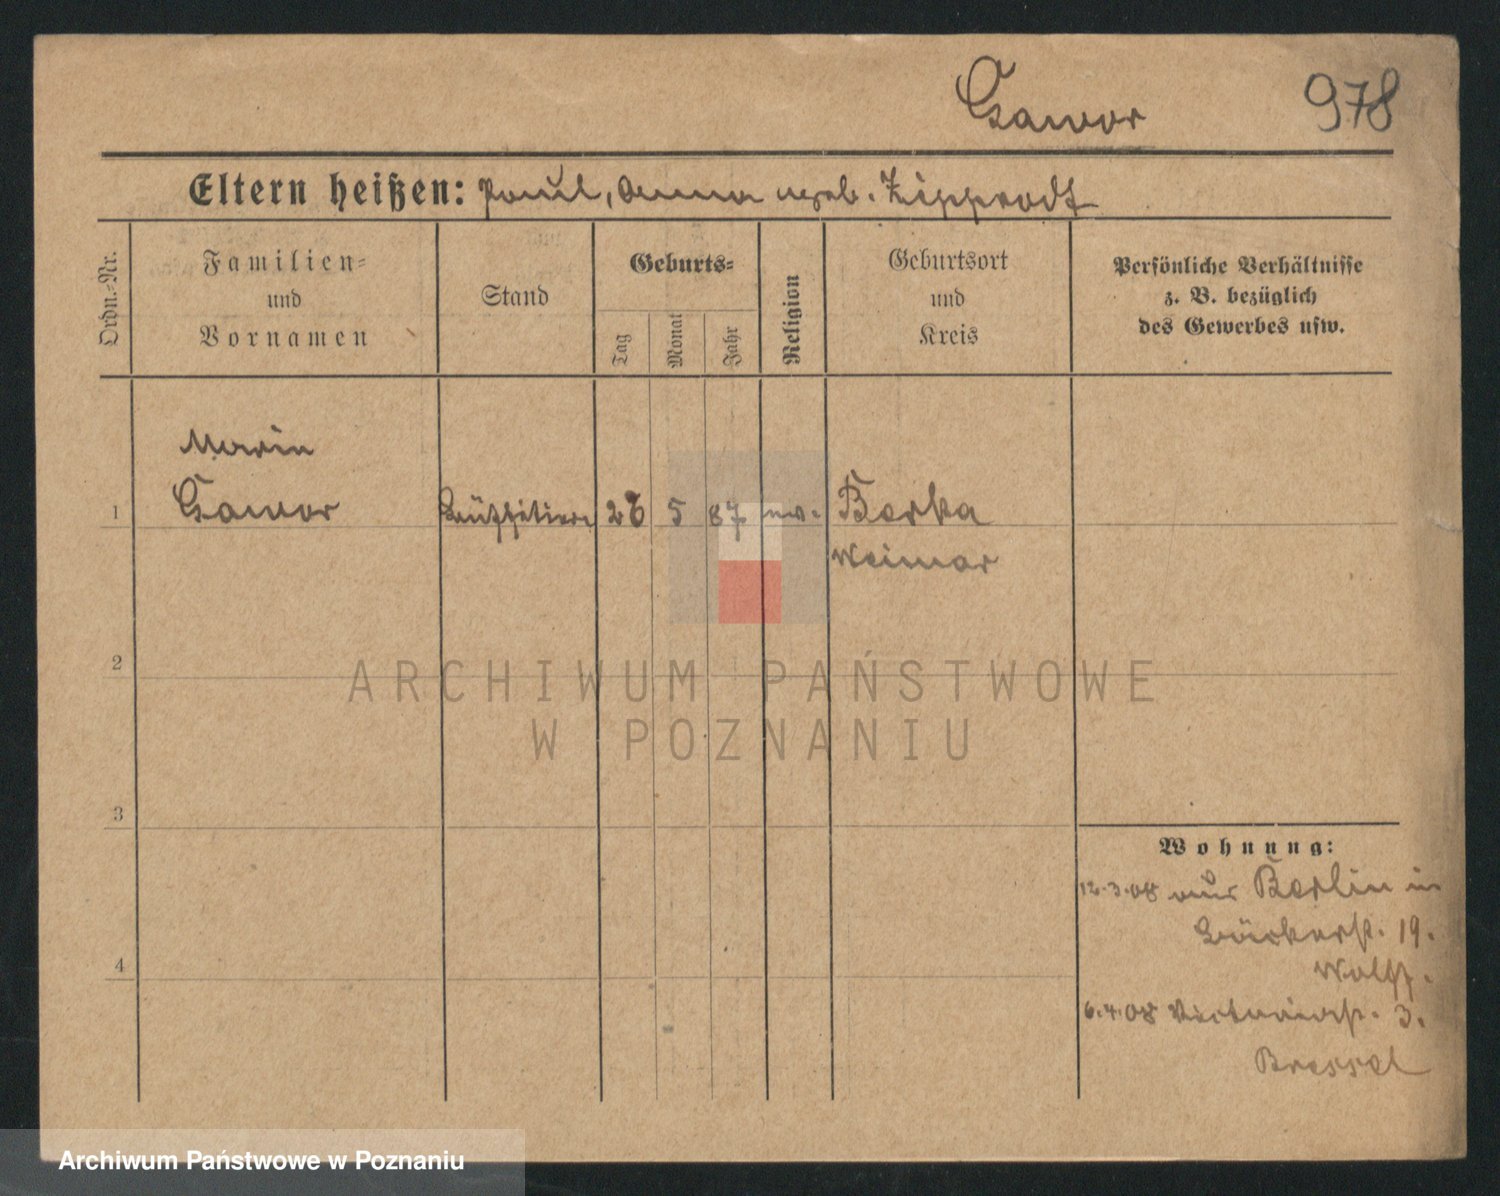 Gawor
978
Eltern heißen: Paul, Anna geb. Zipprodt
Ordn.-Nr.
Familien-
und
Vornamen
Stand
Geburts-
Tag
Monat
Jahr
Religion
Geburtsort
und
Kreis
Persönliche Verhältnisse
z. B. bezüglich
des Gewerbes usw.
Marie
1 Gawor 26 5 87 ev. Berka
Weimar
2
ARCHIWUM PAŃSTWOWE
W POZNANIU
3
Wohnung:
12.3.08 aus Berlin in
Bäckerst. 19.
4
6.4.08 Victoriast. 3.
Bressel
Archiwum Państwowe w Poznaniu